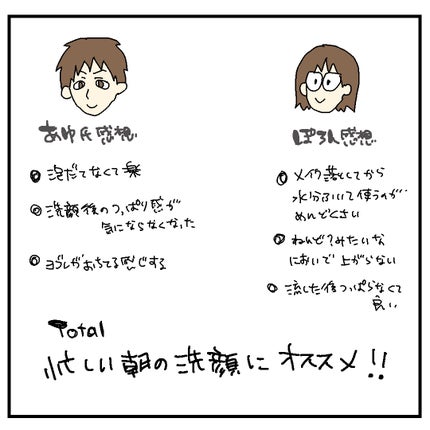 あゆ氏感想
泡だてなくて楽
洗顔後のつっぱり感が
気にならなくなった
ヨゴレがおちてる感じする
ぽろん感想
メイク落としてから
水分ふいて使うのが
めんどくさい
ねんど？みたいな
においで上がらない
流した後つっぱらなくて
良い
Total
忙しい朝の洗顔にオススメ!!